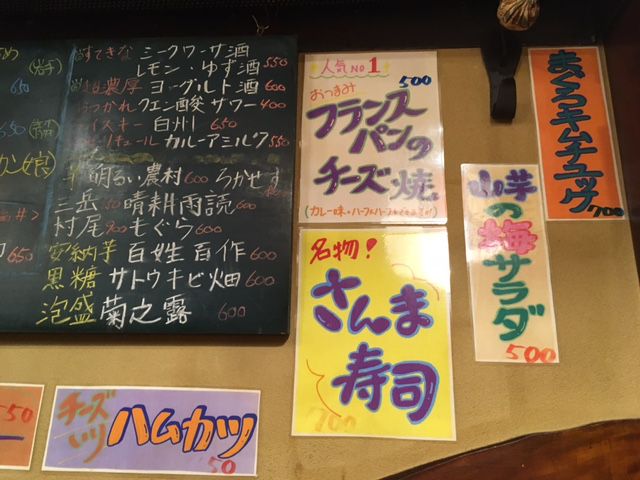 すてきな シークワーサ酒
レモン・ゆず酒 550
濃厚 ヨーグルト酒 600
つかれ クエン酸 サワー 400
イスキー 白州 650
リキュール カルーアミルク 550
明るい農村 600
三岳 550 晴耕雨読 600
村尾 900 もぐら 600
安納芋 百姓百作 600
黒糖 サトウキビ畑 600
泡盛 菊之露 600
(岩手)
650
か娘
650
人気 No 1
500
おつまみ
フランス
パンの
チーズ焼
名物!
さんま
寿司
700
山芋
の
梅
サラダ
500
まぐろキムチユッケ
700
50
チーズ
ハムカツ
50